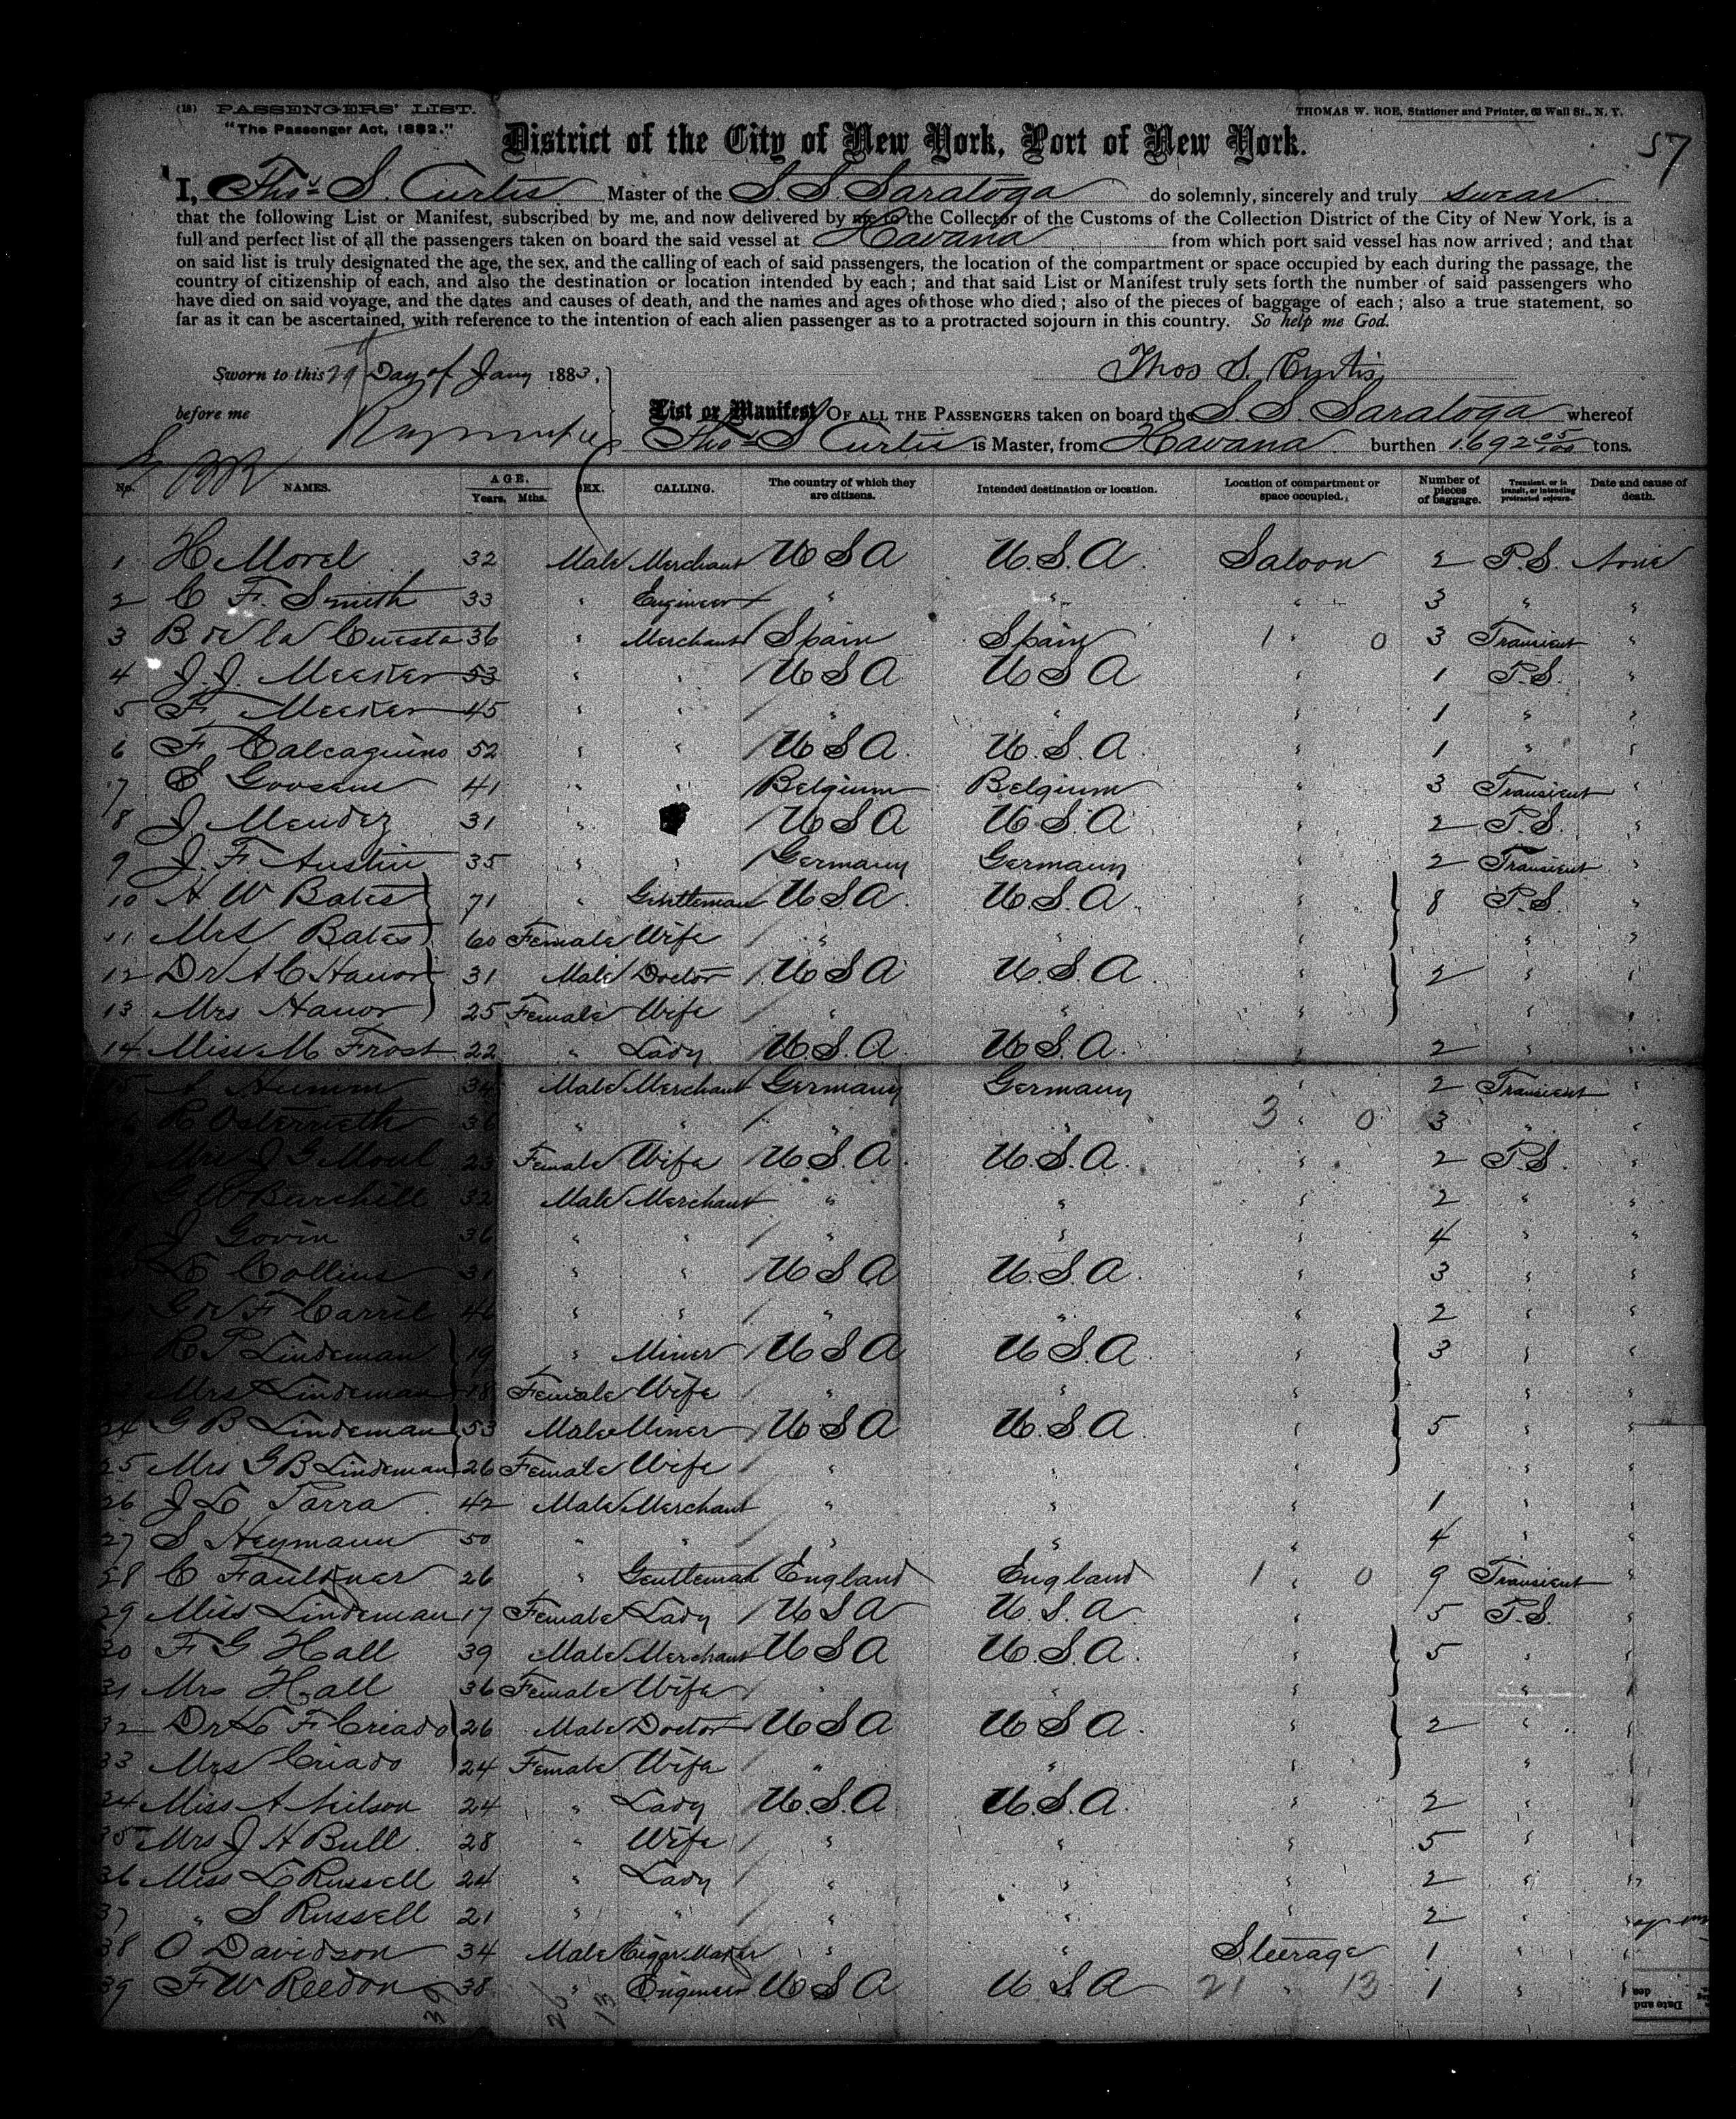 (18) PASSENGERS' LIST.
THOMAS W. ROE, Stationer and Printer, 63 Wall St., N. Y.
"The Passenger Act, 1882."
District of the City of New York, Port of New York.
57
I, Thos S. Curtis Master of the S. S. Saratoga do solemnly, sincerely and truly swear
that the following List or Manifest, subscribed by me, and now delivered by me to the Collector of the Customs of the Collection District of the City of New York, is a
full and perfect list of all the passengers taken on board the said vessel at Havana from which port said vessel has now arrived; and that
on said list is truly designated the age, the sex, and the calling of each of said passengers, the location of the compartment or space occupied by each during the passage, the
country of citizenship of each, and also the destination or location intended by each; and that said List or Manifest truly sets forth the number of said passengers who
have died on said voyage, and the dates and causes of death, and the names and ages of those who died; also of the pieces of baggage of each; also a true statement, so
far as it can be ascertained, with reference to the intention of each alien passenger as to a protracted sojourn in this country. So help me God.
Sworn to this 29 Day of Jany 1883, Thos S. Curtis
before me
List or Manifest OF ALL THE PASSENGERS taken on board the S. S. Saratoga whereof
Thos S Curtis is Master, from Havana burthen 1692 05/100 tons.
No. NAMES. AGE. Years. Mths. SEX. CALLING. The country of which they are citizens. Intended destination or location. Location of compartment or space occupied. Number of pieces of baggage. Transient, or in transit, or intending protracted sojourn. Date and cause of death.
1 H Morel 32 Male Merchant U S A U.S.A. Saloon 2 P.S. None
2 C F. Smith 33 " Engineer " " " 3 " "
3 B de la Cuesta 36 " Merchant Spain Spain 1 " 0 3 Transient "
4 J. J. Meeker 53 " " U S A U S A " 1 P.S. "
5 F. Meeker 45 " " " " " 1 " "
6 F. Calcaguino 52 " " U S A. U.S.A. " 1 " "
7 S Goosens 41 " " Belgium Belgium " 3 Transient "
8 J. Mendez 31 " U S A U.S.A " 2 P.S. "
9 J. F. Austin 35 " " Germany Germany " 2 Transient "
10 A W Bates 71 " Gentleman U.S.A. U.S.A. " 8 P.S. "
11 Mrs Bates 60 Female Wife " " " " "
12 Dr A C Hanor 31 Male Doctor U S A U.S.A. " 2 " "
13 Mrs Hanor 25 Female Wife " " " " "
14 Miss M Frost 22 " Lady U.S.A. U.S.A. " 2 " "
15 A Humm 34 Male Merchant Germany Germany " 2 Transient "
16 R Osterrieth 36 " " " " 3 " 0 3 " "
Mrs J G Morel 23 Female Wife U.S.A. U.S.A. " 2 P.S. "
G W Burchell 32 Male Merchant " " " 2 " "
J Govin 36 " " " " " 4 " "
L Collins 31 " " U S A U.S.A. " 3 " "
G de F Carril 46 " " " " " 2 " "
R P Lindeman 19 " Miner U S A U S.A. " 3 " "
Mrs Lindeman 18 Female Wife " " " " "
24 G B Lindeman 53 Male Miner U S A U.S.A. " 5 " "
25 Mrs G B Lindeman 26 Female Wife " " " " "
26 J L Tarra 42 Male Merchant " " " 1 " "
27 S Heymann 50 " " " " " 4 " "
28 C Faulkner 26 " Gentleman England England 1 " 0 9 Transient "
29 Miss Lindeman 17 Female Lady U S A U.S.A " 5 P.S. "
30 F G Hall 39 Male Merchant U S A U.S.A. " 5 " "
31 Mrs Hall 36 Female Wife " " " " "
32 Dr L F Criado 26 Male Doctor U S A U S A. " 2 " "
33 Mrs Criado 24 Female Wife " " " " "
34 Miss A Neilson 24 " Lady U.S.A. U.S.A. " 2 " "
35 Mrs J H Bull 28 " Wife " " " 5 " "
36 Miss L Russell 24 " Lady " " " 2 " "
37 " S Russell 21 " " " " " 2 " "
38 O Davidson 34 Male Cigar Maker " " Steerage 1 " "
39 F W Reedon 38 " Engineer U S A U S A 21 " 13 1 " "
39 26 13
Date and